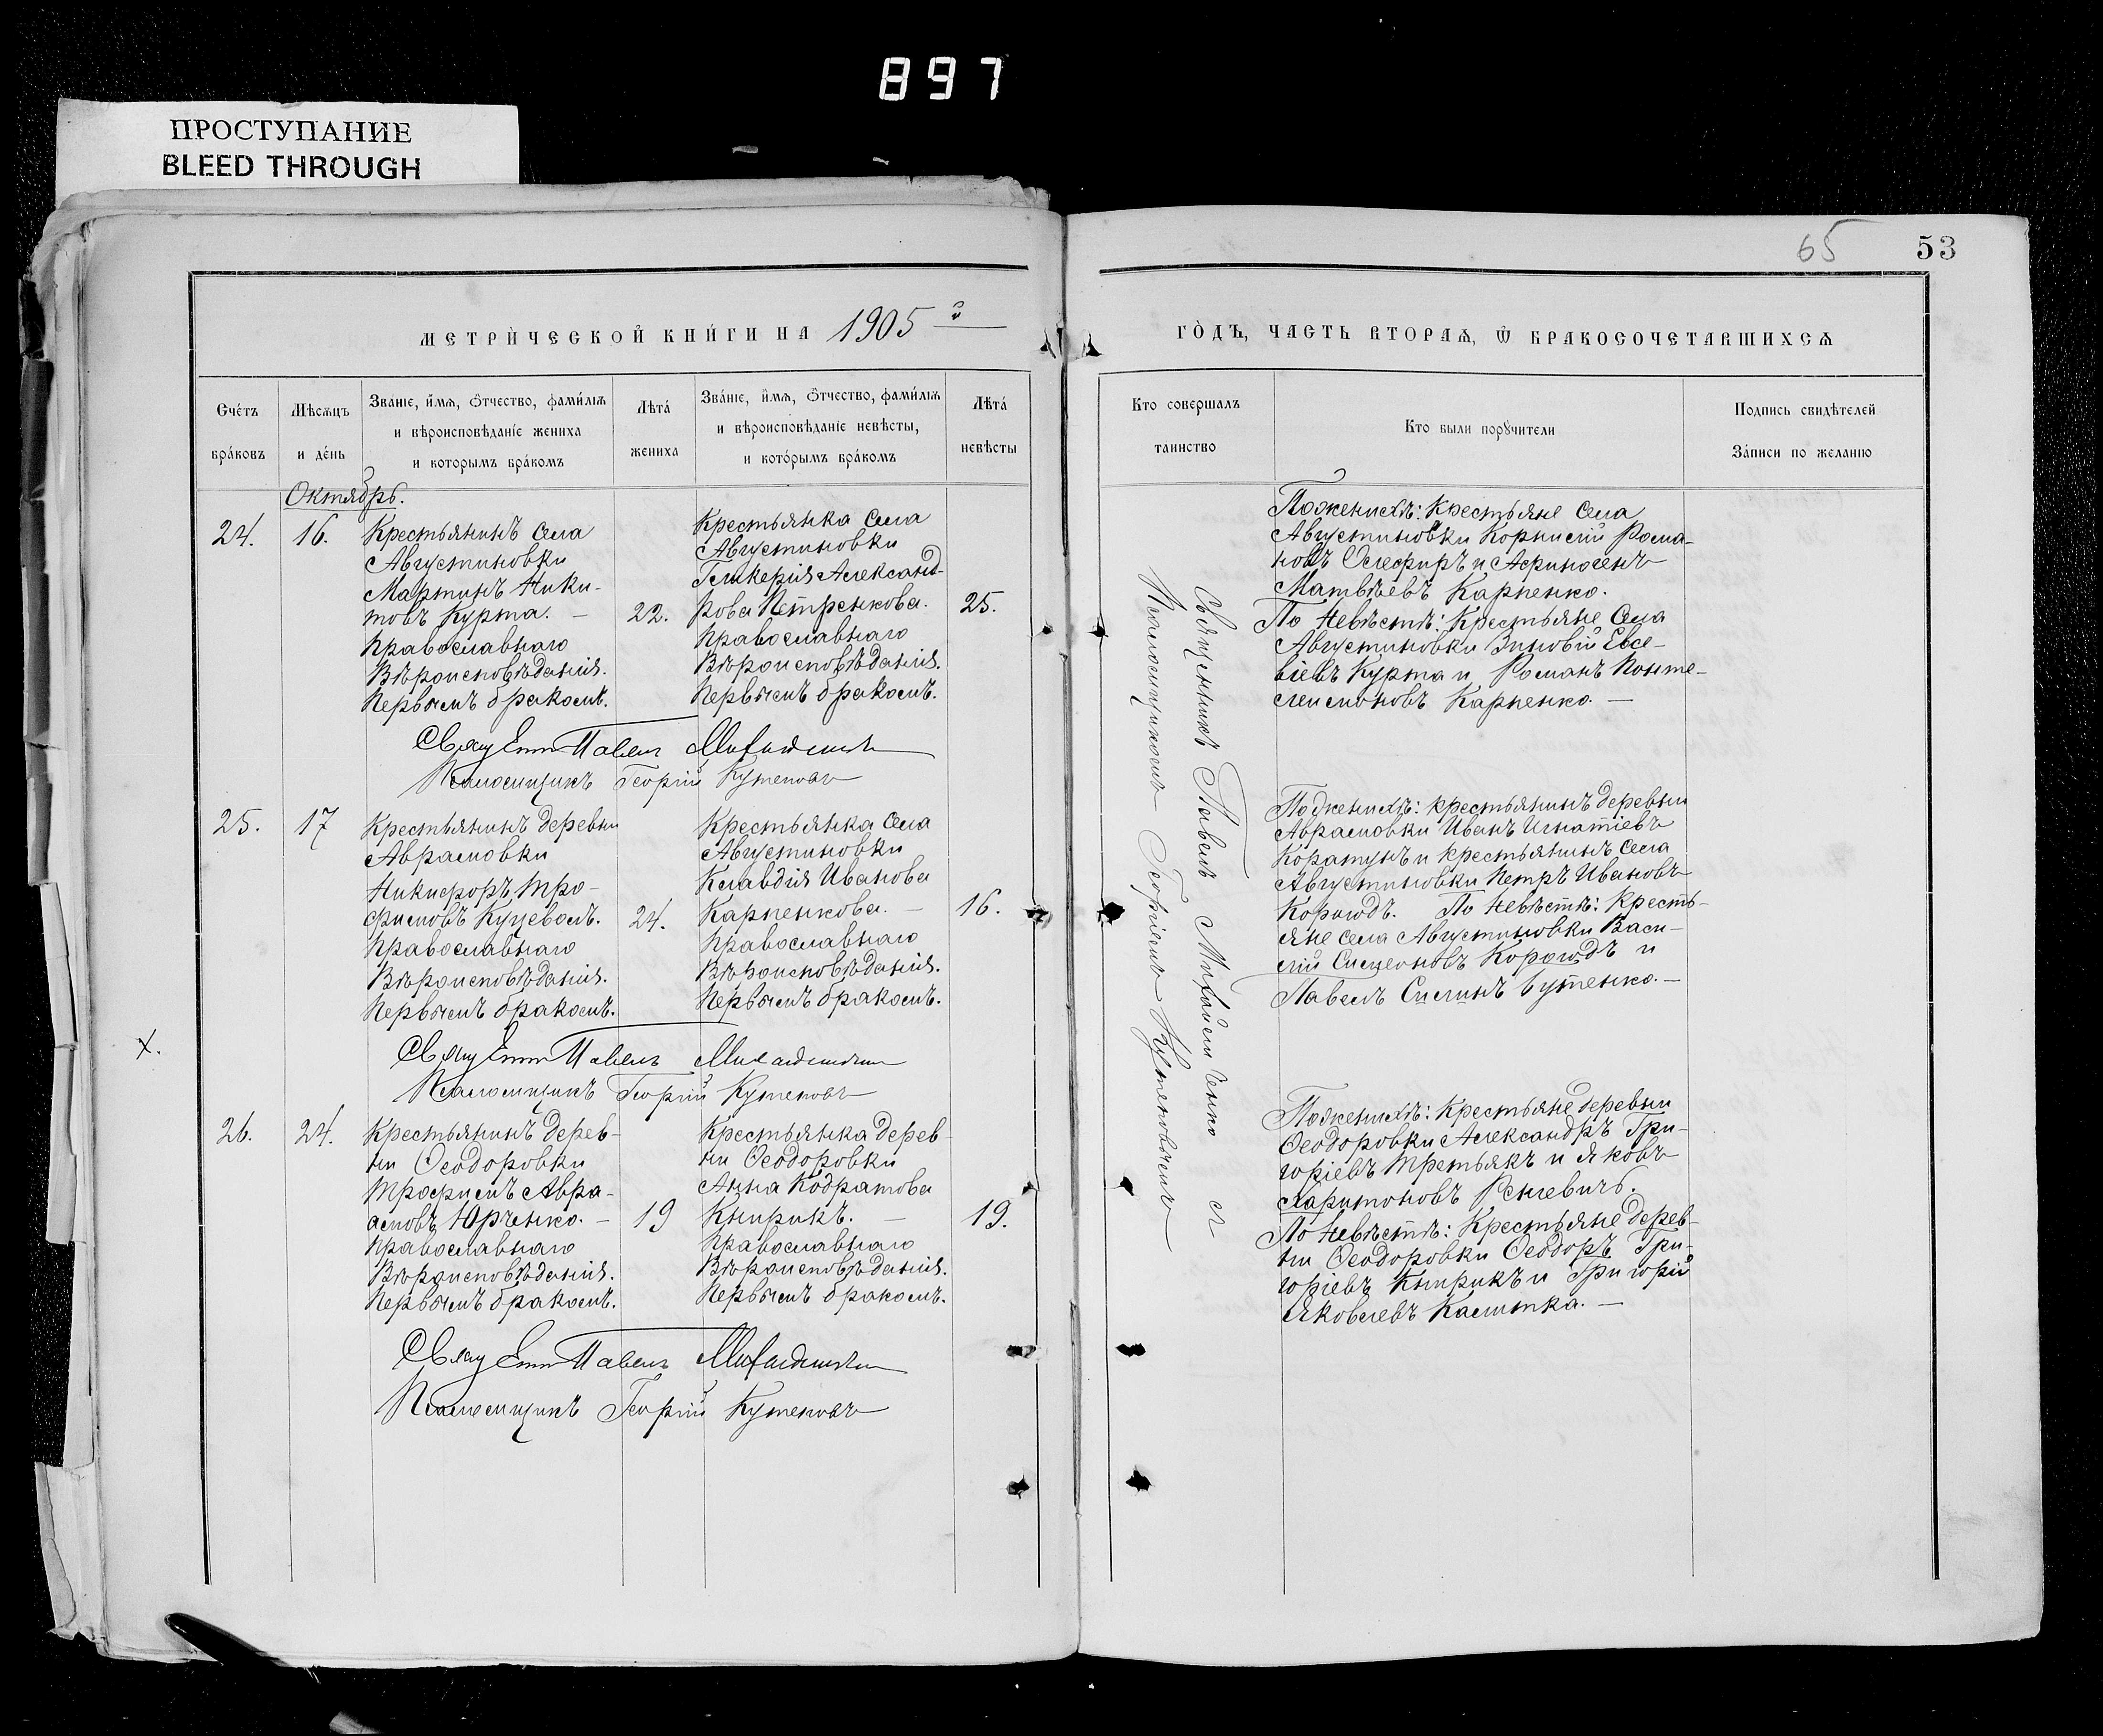 897
ПРОСТУПАНИЕ
BLEED THROUGH
65
53
МЕТРИ́ЧЕСКОЙ КНИ́ГИ НА 1905 й
ГО́ДЪ, ЧАСТЬ ВТОРАѦ, Ѿ БРАКОСОЧЕТАВШИХСѦ
Сче́тъ
бра́ковъ
Мѣсѧцъ
и де́нь
Званіе, и́мѧ, о́тчество, фами́лїѧ
и вѣроисповѣданіе жениха
и которымъ бра́комъ
Лѣта́
жениха
Зва́ніе, и́мѧ, о́тчество, фами́лїѧ
и вѣроисповѣданіе невѣсты,
и кото́рымъ бра́комъ
Лѣта́
невѣсты
Кто совершалъ
таинство
Кто были порꙋчители
Подпись свидѣтелей
За́писи по желанію
Октябрь.
24.
16.
Крестьянинъ села
Августиновки
Мартинъ Ники-
товъ Курта. —
православнаго
вѣроисповѣданія.
первымъ бракомъ.
22.
Крестьянка села
Августиновки
Гликерія Александ-
рова Петренкова.
православнаго
вѣроисповѣданія.
первымъ бракомъ.
25.
По женихѣ: крестьяне села
Августиновки Корнилій Рома-
новъ Олефиръ и Афиногенъ
Матвѣевъ Карпенко.
По невѣстѣ: крестьяне села
Августиновки Зиновій Евсе-
віевъ Курта и Романъ Понте-
леимоновъ Карпенко. —
Священникъ Павелъ
Псаломщикъ Георгій Кутеповъ
25.
17
Крестьянинъ деревни
Аврамовки
Никифоръ Тро-
фимовъ Куцеволъ.
православнаго
вѣроисповѣданія.
первымъ бракомъ.
24.
Крестьянка села
Августиновки
Клавдія Иванова
Карпенкова. —
православнаго
вѣроисповѣданія.
первымъ бракомъ.
16.
По женихѣ: крестьянинъ деревни
Аврамовки Иванъ Игнатіевъ
Коратунъ и крестьянинъ села
Августиновки Петръ Ивановъ
Корогодъ. По невѣстѣ: крестъ-
яне села Августиновки Васи-
лій Симеоновъ Корогодъ и
Павелъ Силинъ Бутенко. —
х.
Священникъ Павелъ
Псаломщикъ Георгій Кутеповъ
26.
24.
Крестьянинъ дерев-
ни Ѳеодоровки
Трофимъ Авра-
амовъ Юрченко. —
православнаго
вѣроисповѣданія.
первымъ бракомъ.
19
Крестьянка дерев-
ни Ѳеодоровки
Анна Кодратова
Кнырикъ. —
православнаго
вѣроисповѣданія.
первымъ бракомъ.
19.
По женихѣ: крестьяне деревни
Ѳеодоровки Александръ Гри-
горіевъ Третьякъ и Яковъ
Харитоновъ
По невѣстѣ: крестьяне дерев-
ни Ѳеодоровки Ѳеодоръ Гри-
горіевъ Кнырикъ и Григорій
Яковлевъ Калитка. —
Священникъ Павелъ
Псаломщикъ Георгій Кутеповъ
Священникъ Павелъ Михайличенко съ
Псаломщикомъ Георгіемъ Кутеповымъ